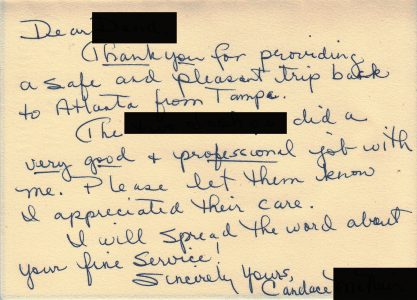 Dear
Thank you for providing
a safe and pleasant trip back
to Atlanta from Tampa.
The did a
very good + professional job with
me. Please let them know
I appreciated their care.
I will spread the word about
your fine service!
Sincerely Yours,
Candace